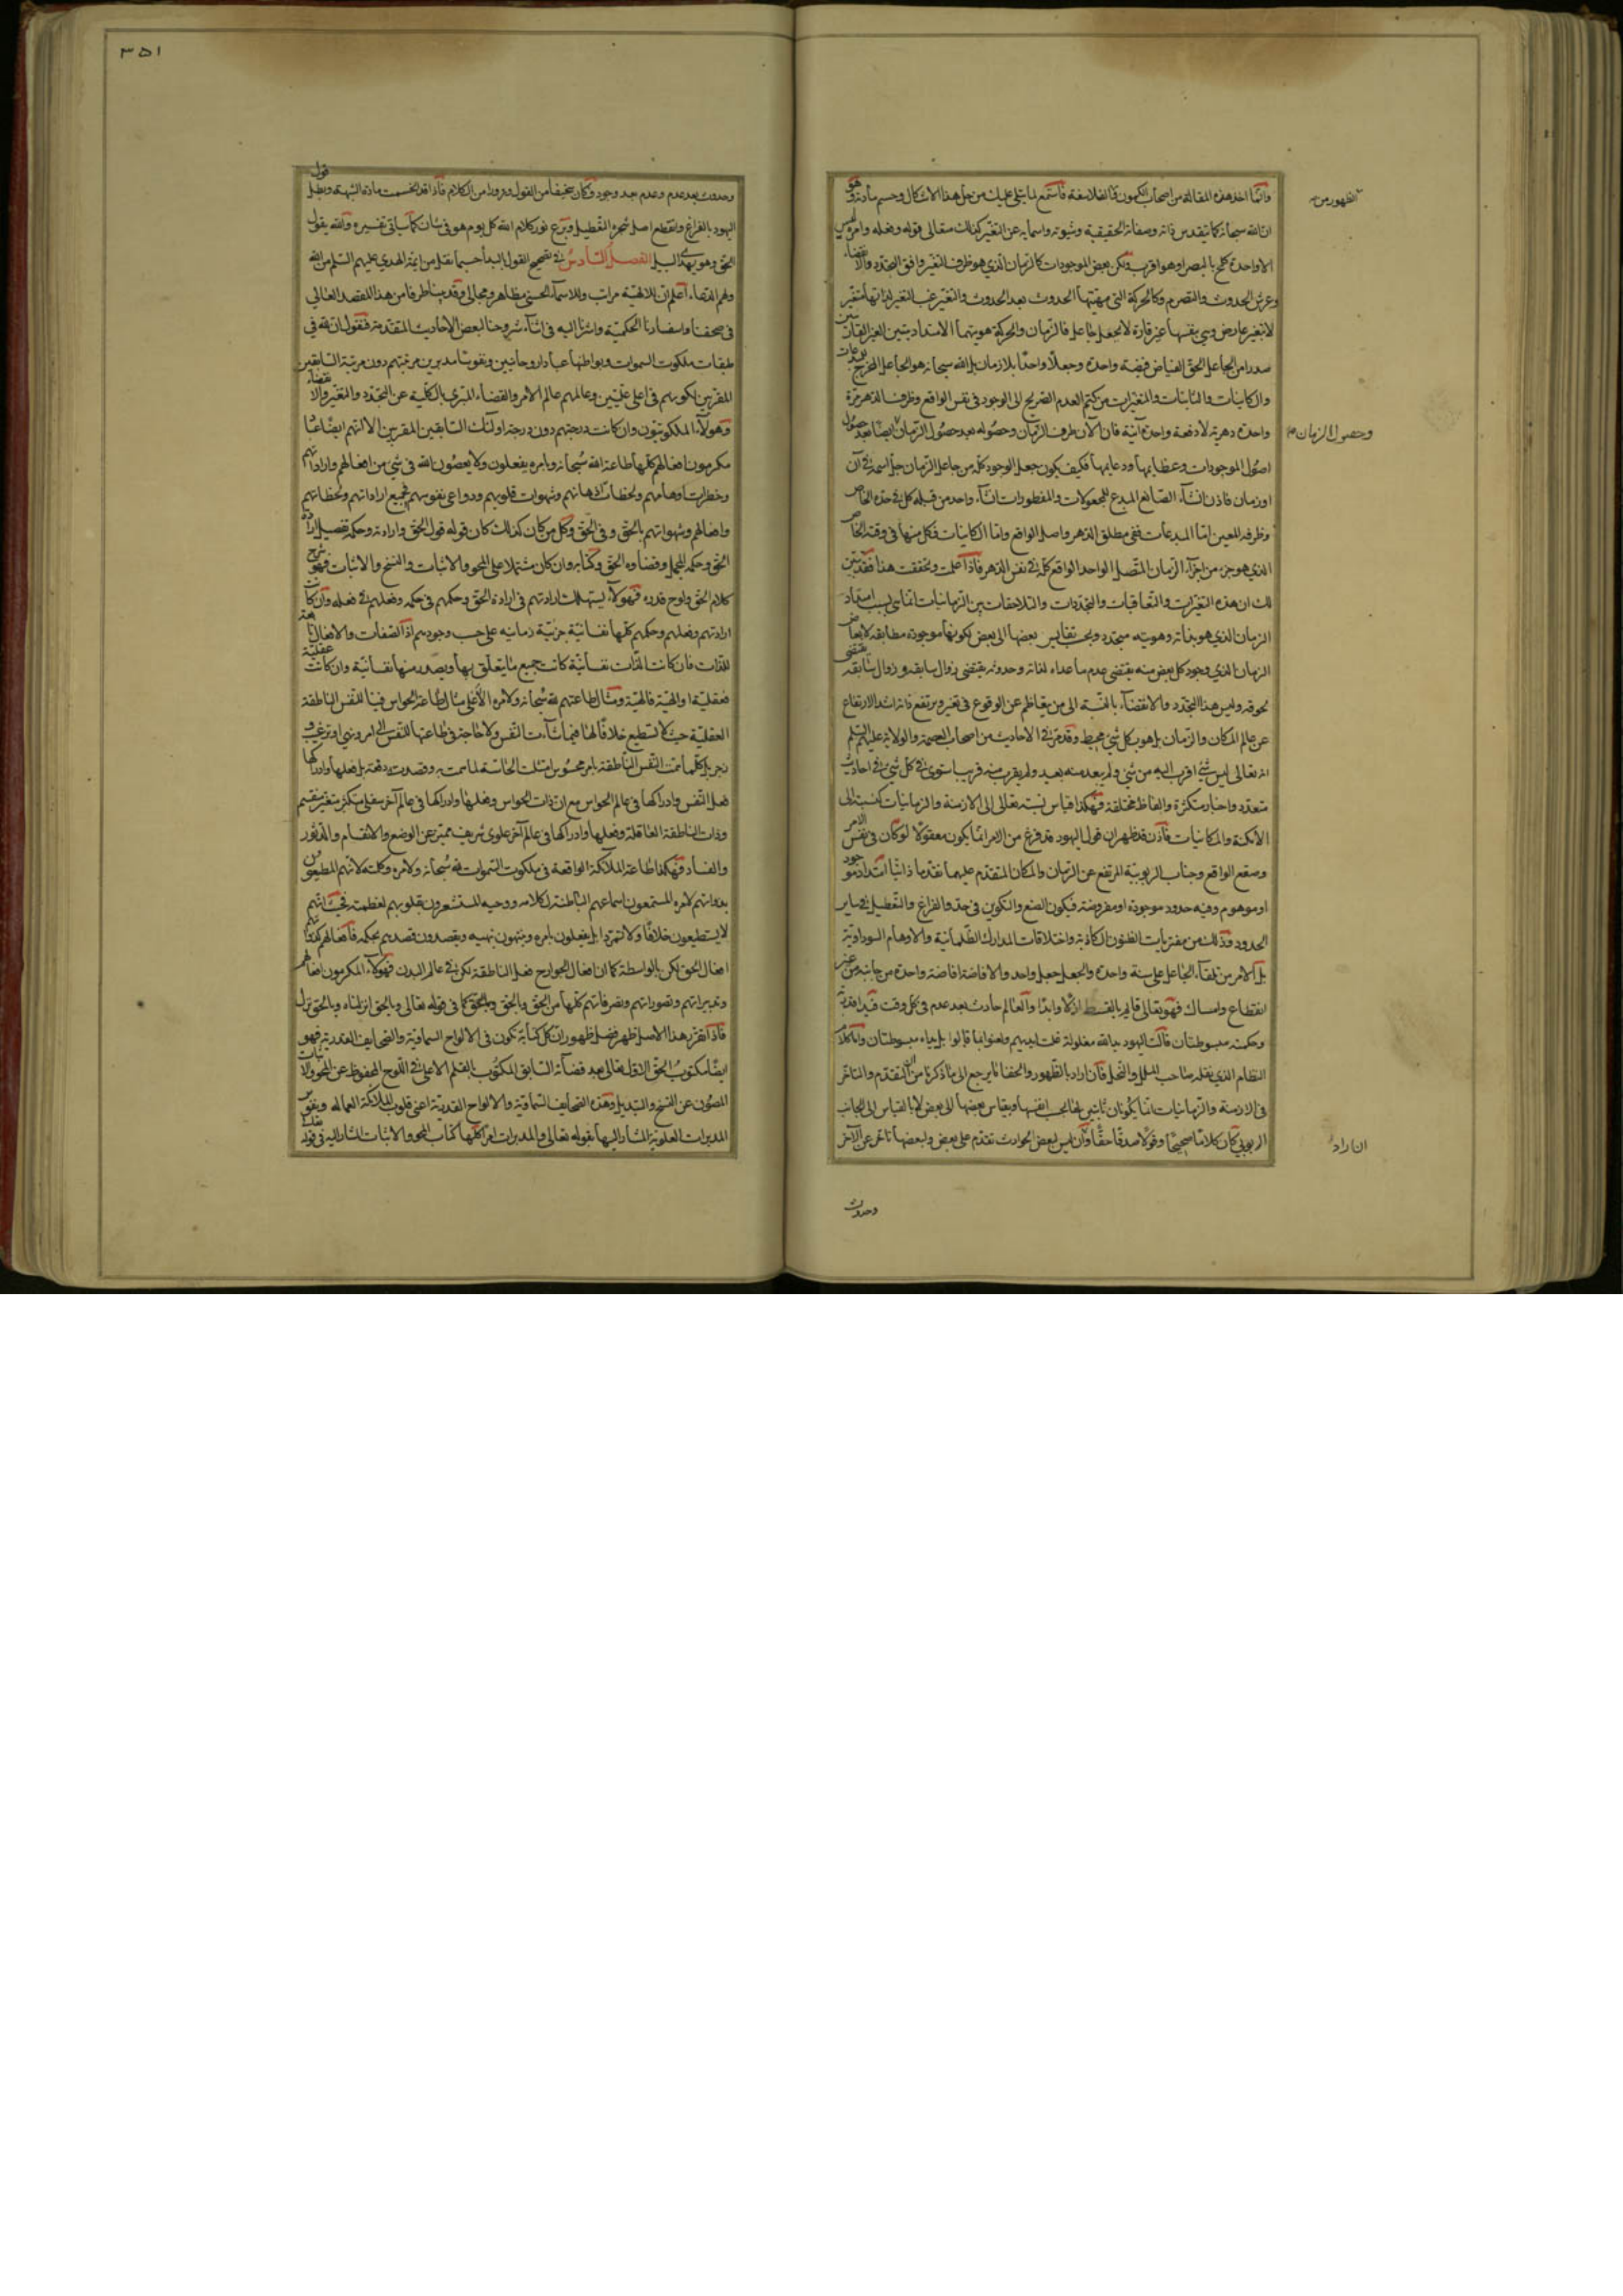 وانما اخذ هذه المقالة من اصحاب الكمون من الفلاسفة فاستمع لما يتلى عليك من حل هذا الاشكال وحسم مادته وهو
ان الله سبحانه كما يتقدس ذاته وصفاته الحقيقية وشبوته واسمائه عن التغير كذلك متعالى قوله وفعله وامره ليس
الا واحدة كلمح بالبصر او هو اقرب ولكن بعض الموجودات كالزمان الذي هو ظرف التغير وافق التجدد والانقضاء
وعرش الحدوث والتصرم وكالحركة التي مهيتها الحدوث بعد الحدوث والتغير غب التغير لذاتها متغير
لا بتغير عارض وهي بنفسها غير قارة لا بجعل جاعل فالزمان والحركة هويتهما الامتداديتين الغير القارتين
صدرا من الجاعل الحق الفياض فيضة واحدة وجعلا واحدا بلا زمان بل الله سبحانه هو الجاعل المخرج للمبدعات
والكاينات والثابتات والمتغيرات من كتم العدم الصريح الى الوجود في نفس الواقع وظرف الدهر مرة
واحدة دهرية لا دفعة واحدة آنية فان الآن طرف الزمان وحصوله بعد حصول الزمان ايضا بعد حصول
اصول الموجودات وعظايمها ودعايمها فكيف يكون جعل الوجود كله من جاعل الزمان جل اسمه في آن
او زمان فاذن انشاء الصانع المبدع للمجعولات والمفطورات انشاء واحد من قبله كل في حده الخاص
وظرفه المعين اما المبدعات ففي مطلق الدهر واصل الواقع واما الكاينات فكل منها في وقته الخاص
الذي هو جزء من اجزاء الزمان المتصل الواحد الواقع كله في نفس الدهر فاذا علمت وتحققت هذا فقد تبين
لك ان هذه التغيرات والتعاقبات والتجددات والتلاحقات بين الزمانيات انما هي بسبب امتداد
الزمان الذي هو بذاته وهويته متجدد وبحب تقايس بعضها الى بعض لكونها موجودة مطابقة لابعاض
الزمان الذي وجود كل بعض منه يقتضي عدم ما عداه لذاته وحدوثه يقتضي زوال سابقه وزوال سابقه يقتضي
لحوقه وليس هذا التجدد والانقضاء بالنسبة الى من يتعاظم عن الوقوع في تغير ويرتفع ذاته اشد الارتفاع
عن عالم المكان والزمان بل هو بكل شيء محيط وقد مر في الاحاديث من اصحاب العصمة والولاية عليهم السلم
انه تعالى ليس شيء اقرب اليه من شيء ولم يبعد منه بعيد ولم يقرب منه قريب استوى في كل شيء في احاديث
متعدد واخبار متكثرة والفاظ مختلفة فهكذا قياس نسبته تعالى الى الازمنة والزمانيات كنسبته الى
الامكنة والمكانيات فاذن قد ظهر ان قول اليهود قد فرغ من الامر انما يكون معقولا لو كان في نفس الامر
وصقع الواقع وجناب الربوبية المرتفع عن الزمان والمكان المتقدم عليهما تقدما ذاتيا امتداد موجود
او موهوم وفيه حدود موجودة او مفروضة فيكون الصنع والتكوين في حد والفراغ والتعطيل في ساير
الحدود وذلك من مفتريات الظنون الكاذبة واختلاقات المدارك الظلمانية والاوهام السوداوية
بل الامر من تلقاء الجاعل على سنة واحدة والجعل جعل واحد والافاضة افاضة واحدة من جانبه من غير
انقطاع وامساك فهو تعالى قايم بالقسط ازلا وابدا والعالم حادث بعد عدم في كل وقت فيد قدرته
وحكمته مبسوطتان قالت اليهود يد الله مغلولة غلت ايديهم ولعنوا بما قالوا بل يداه مبسوطتان واما كلام
النظام الذي نقله صاحب الملل والنحل فان اراد بالظهور والخفا ما يرجع الى ما ذكرنا من ان التقدم والتاخر
في الازمنة والزمانيات انما يكونان ثابتين لها بحب انفسها وبقياس بعضها الى بعض لا بالقياس الى الجانب
الربوبي كان كلاما صحيحا وقولا صدقا حقا وان ليس لبعض الحوادث تقدم على بعض ولبعضها تاخر عن الآخر
الظهور من
وحصول الزمان
ان اراد
وحدوث
٣٥١
وحدوث بعد عدم وعدم بعد وجود فكان سخيفا من القول وزورا من الكلام فاذا قد انحسمت مادة الشبهة وبطل قول
اليهود بالفراغ وانقطع اصل شجرة التعطيل وبزغ نور كلام الله كل يوم هو في شان كما سياتي تفسيره والله يقول
الحق وهو يهدي السبيل الفصل السادس في تصحيح القول بالبدأ حسبما نقل من ائمة الهدى عليهم السلم من الله
ولهم الدعاء اعلم ان للالهية مراتب وللاسماء الحسنى مظاهر ومجالي وقد بينا طرفا من هذا المقصد العالي
في صحفنا واسفارنا الحكمية واشرنا اليه في اثناء شروحنا لبعض الاحاديث المتقدمة فنقول ان لله في
طبقات ملكوت السموات وبواطنها عبادا روحانيين ونفوسا مدبرين مرتبتهم دون مرتبة السابقين
المقربين لكونهم في اعلى عليين وعالمهم عالم الامر والقضاء المبرى بالكلية عن التجدد والتغير والانقضاء
وهؤلاء الملكوتيون وان كانت درجتهم دون درجة اولئك السابقين المقربين الا انهم ايضا عباد
مكرمون افعالهم كلها طاعة الله سبحانه وبامره يفعلون ولا يعصون الله في شيء من افعالهم واراداتهم
وخطرات اوهامهم ولحظات اذهانهم وشهوات قلوبهم ودواعي نفوسهم فجميع اراداتهم ولحظاتهم
وافعالهم وشهواتهم بالحق وفي الحق وكل من كان كذلك كان قوله قول الحق وارادته وحكمه تفصيل ارادة
الحق وحكمه المجمل وقضاوه الحق وكتابه وان كان مشتملا على المحو والاثبات والنسخ والاثبات فهو شرح
كلام الحق ولوح قدره فهؤلاء يستهلك ارادتهم في ارادة الحق وحكمهم في حكمه وفعلهم في فعله وان كانت
ارادتهم وفعلهم وحكمهم كلها نفسانية جزئية زمانية على حسب وجودهم اذ الصفات والافعال تابعة
للذات فان كانت الذات نفسانية كانت جميع ما يتعلق بها ويصدر منها نفسانية وان كانت عقلية
فعقلية او الهية فالهية ومثال طاعتهم لله سبحانه ولامره الاعلى مثال طاعة الحواس فينا للنفس الناطقة
العقلية حيث لا تستطيع خلافا لها فيما شاءت النفس ولا حاجة في طاعتها للنفس الى امر ونهي او ترغيب و
زجر بل كلما همت النفس الناطقة بامر محسوس امتثلت الحاسة لما همت به وقصدت دفعة بل فعلها وادراكها
فعل النفس وادراكها في عالم الحواس مع ان ذات الحواس وفعلها وادراكها في عالم آخر سفلي متكثر متغير منقسم
وذات الناطقة العاقلة وفعلها وادراكها في عالم آخر علوي شريف متميز عن الوضع والانقسام والدثور
والفساد فهكذا طاعة الملائكة الواقعة في ملكوت السموات لله سبحانه ولامره وكلمته لانهم المطيعون
بذواتهم لامره المستمعون اسماعهم الباطنة لكلامه ووحيه المستشعرون بقلوبهم لعظمته
لا يستطيعون خلافا ولا تمردا بل يفعلون بامره وينتهون بنهيه ويقصدون قصدهم بحكمه فافعالهم كذواتهم
افعال الحق لكن بالواسطة كما ان افعال الجوارح فعل الناطقة لكن في عالم البدن فهؤلاء المكرمون افعالهم
وتدبيراتهم وتصوراتهم وتصرفاتهم كلها من الحق وبالحق كما في قوله تعالى وبالحق انزلناه وبالحق نزل
فاذا تقرر هذا الاصل ظهر فضل ظهور ان كل كتابة تكون في الالواح السماوية والصحايف القدرية فهو
ايضا مكتوب الحق الاول تعالى بعد قضائه السابق المكتوب بالقلم الاعلى في اللوح المحفوظ عن المحو والاثبات
المصون عن النسخ والتبديل وهذه الصحايف السماوية والالواح القدرية اعني قلوب الملائكة العمالة ونفوس
المدبرات العلوية المشار اليها بقوله تعالى والمدبرات امرا كلها كتاب المحو والاثبات المشار اليه في قوله تعالى